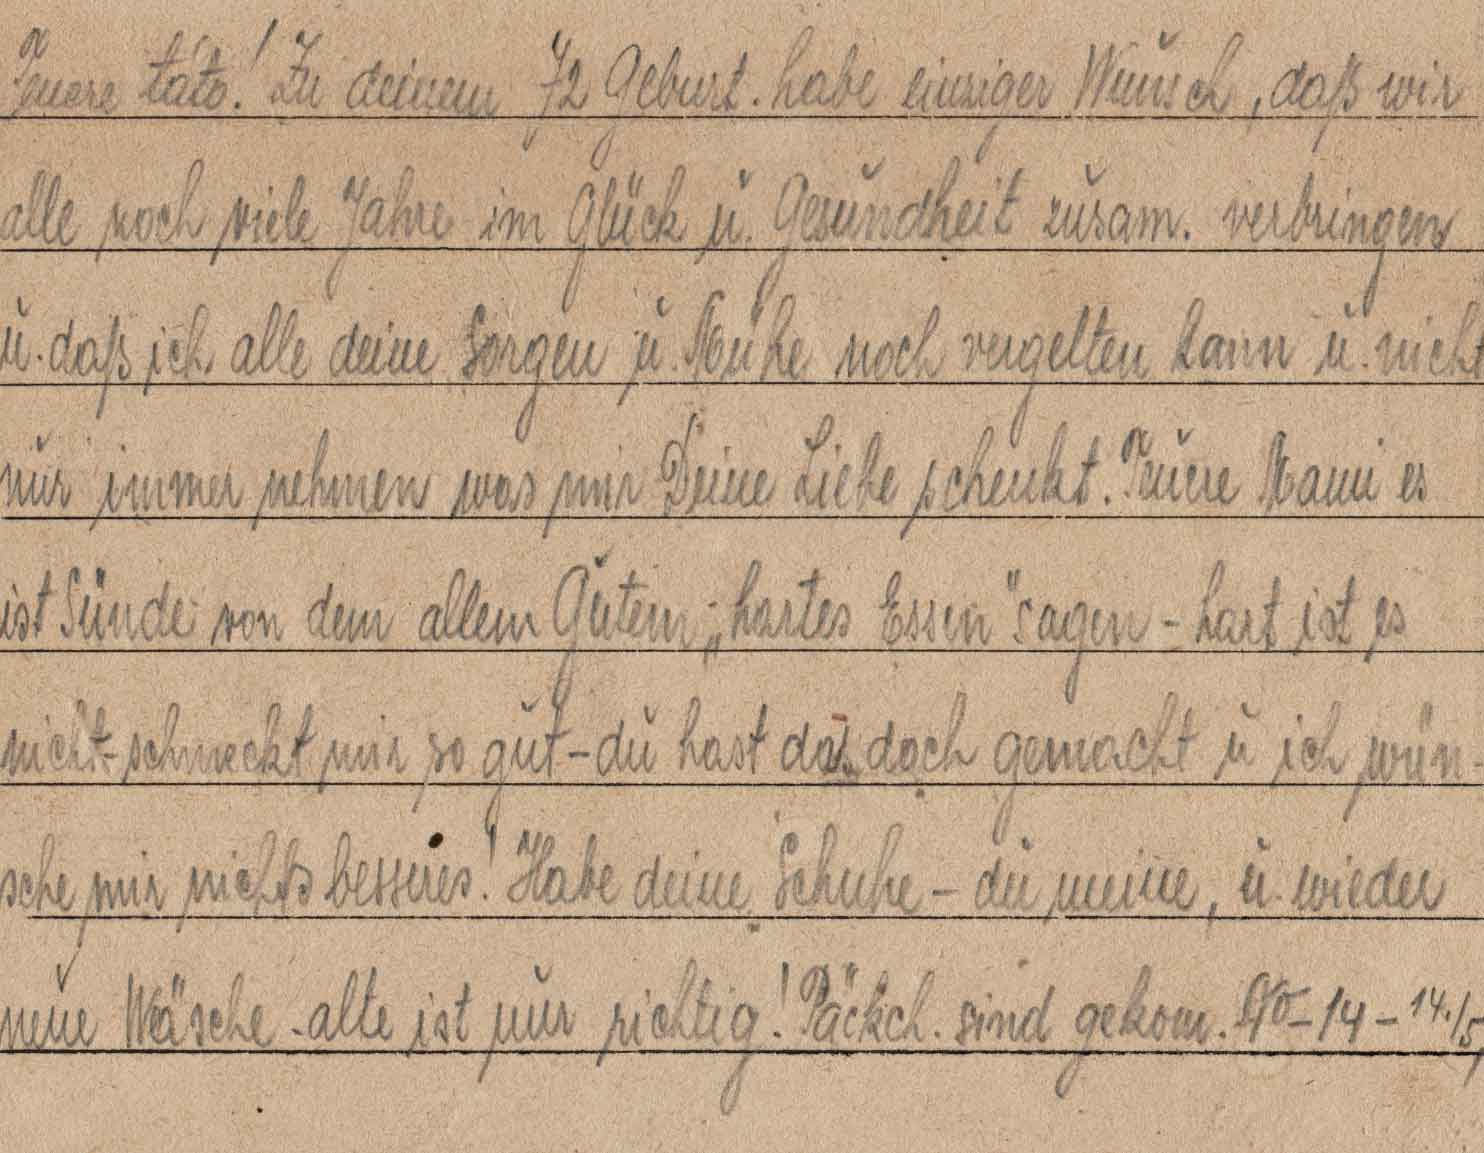 Teuere táto! Zu deinem 72 Geburt. habe einziger Wunsch, daß wir
alle noch viele Jahre im Glück u. Gesundheit zusam. verbringen
u. daß ich alle deine Sorgen u. Mühe noch vergelten kann u. nicht
nur immer nehmen was mir Deine Liebe schenkt. Teuere Mami es
ist Sünde von dem allem Gutem „hartes Essen" sagen - hart ist es
nicht - schmeckt mir so gut - du hast das doch gemacht u ich wün-
sche mir nichts besseres! Habe deine Schuhe - du meine, u. wieder
neue Wäsche - alte ist nur richtig! Päckch. sind gekom. No - 14 - 14./5,